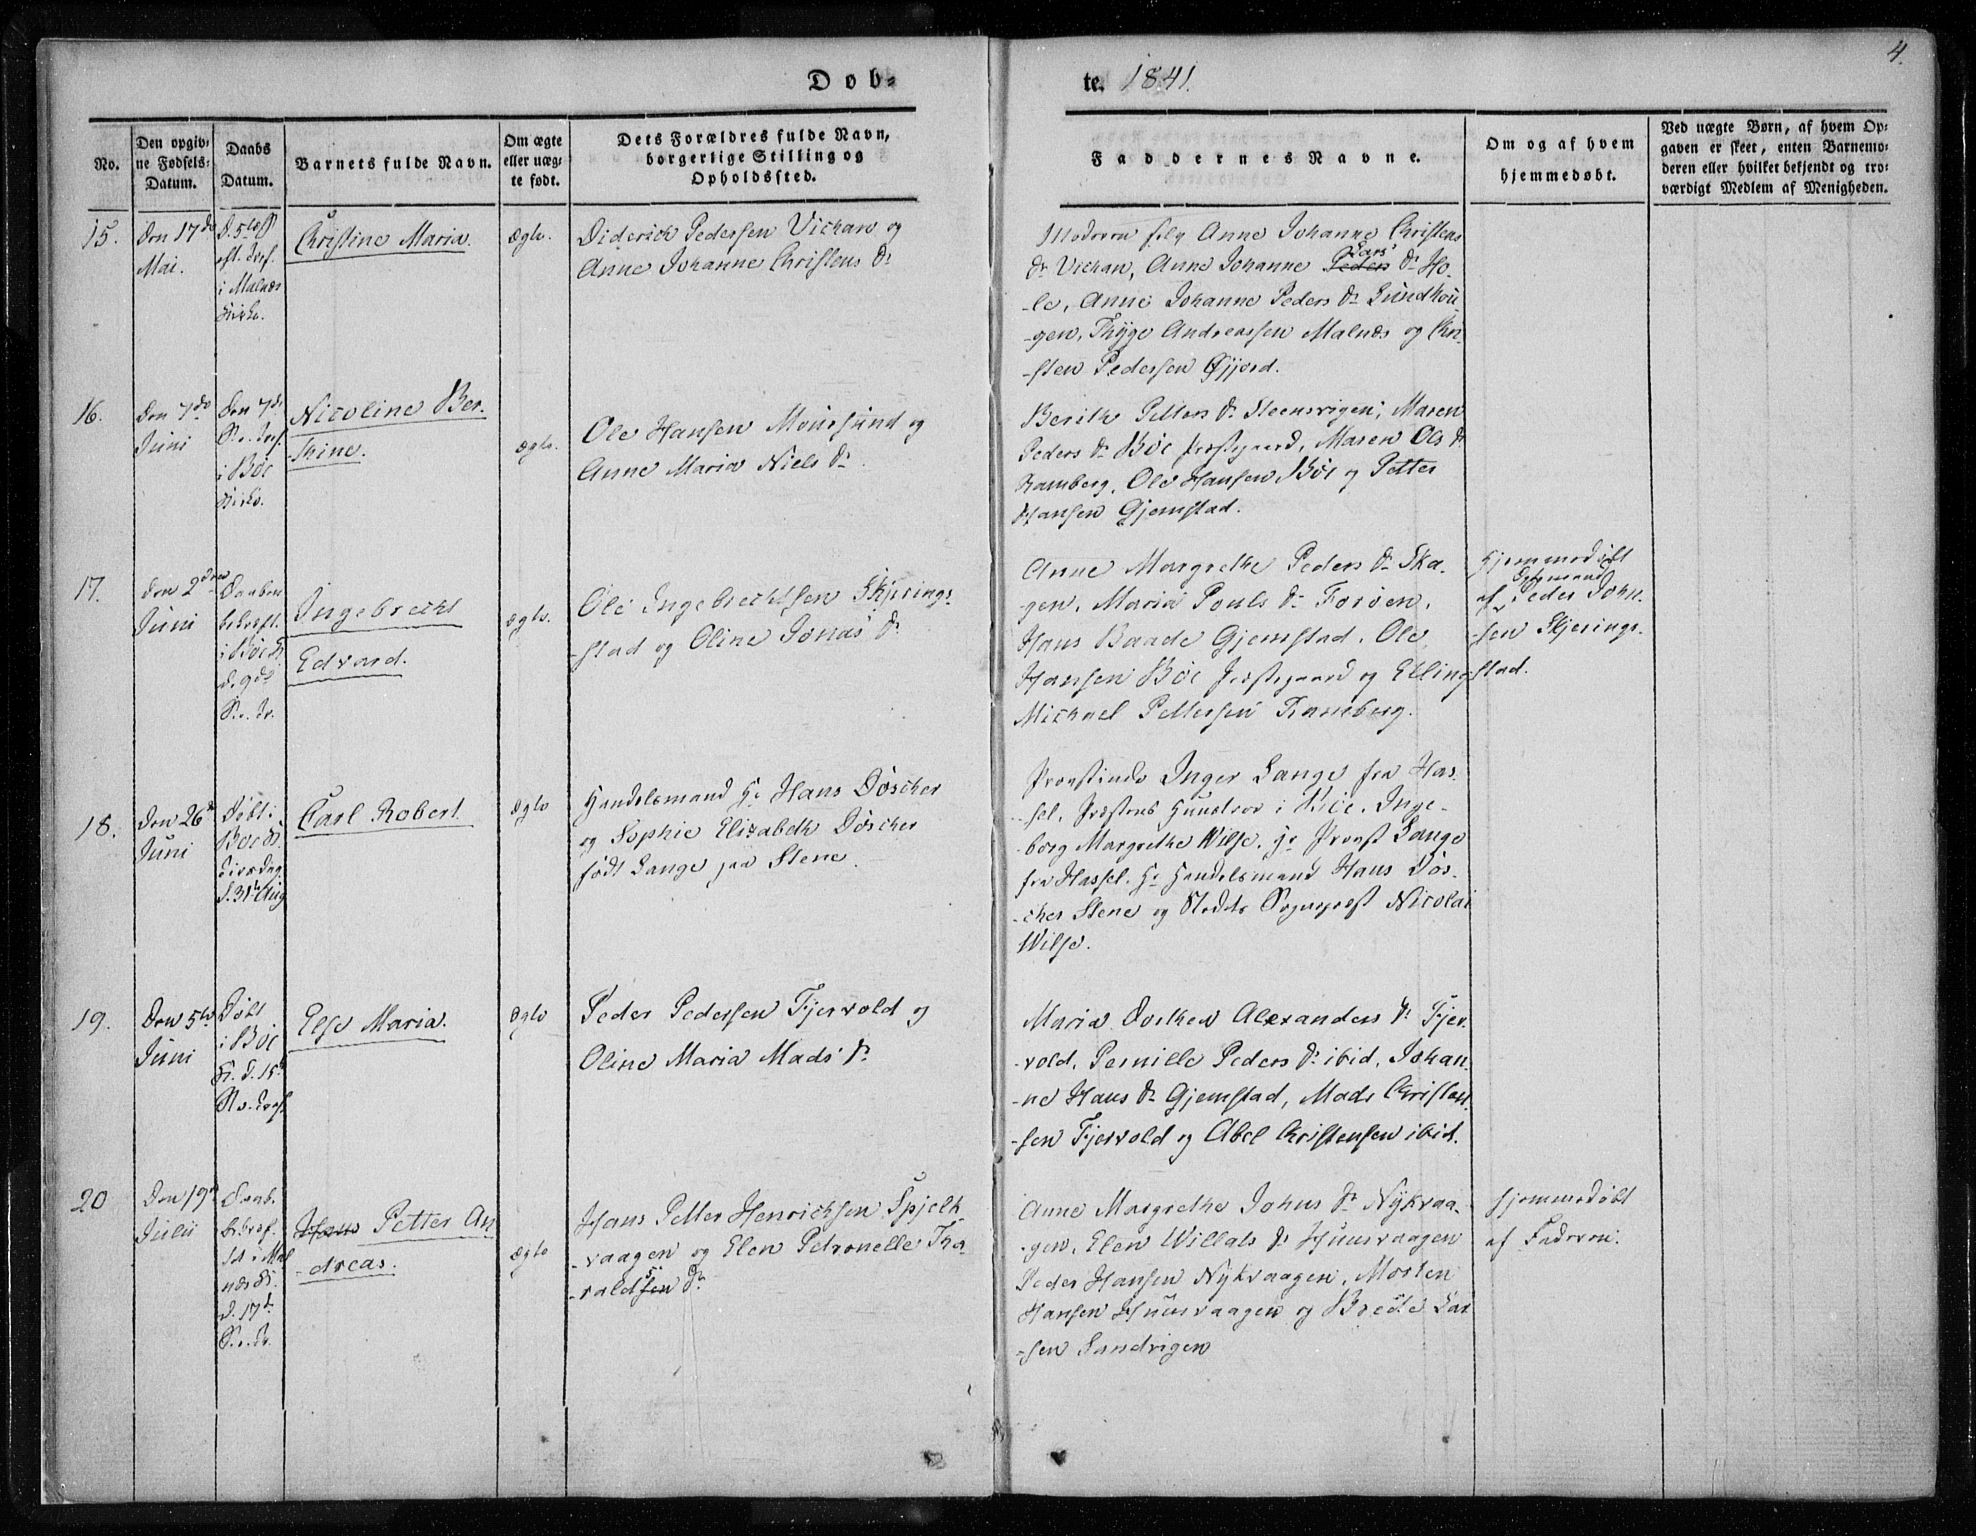 Døb-
te. 1841.
4.
No.
Den opgiv-
ne Fødsels-
Datum.
Daabs
Datum.
Barnets fulde Navn.
Om ægte
eller uæg-
te født.
Dets Forældres fulde Navn,
borgerlige Stilling og
Opholdssted.
Faddernes Navne.
Om og af hvem
hjemmedøbt.
Ved uægte Børn, af hvem Op-
gaven er skeet, enten Barnemo-
deren eller hvilket bekjendt og tro-
værdigt Medlem af Menigheden.
15.
Den 17de
Mai.
i Malnæs
Kirke.
Christine Maria.
Ægte.
Diderich Pedersen Vichan og
Anne Johanne Christens Dr
Moderen selv Anne Johanne Christens
Dr Vichan, Anne Johanne Peders Lars' Dr Ho-
-le, Anne Johanne Peders Dr Lundhou-
-gen, Thyge Andreassen Malnæs og Chri-
-sten Pedersen Øjjord.
16.
Den 7de
Juni
Den 7de
i Böe
Kirke.
Nicoline Ber-
-thine.
ægte.
Ole Hansen Mousund og
Anne Maria Niels Dr.
Berith Petters Dr Steensvigen, Maren
Peders Dr Böe Præstegaard, Maren Ols Dr
Ramberg, Ole Hansen Böe og Petter
Hansen Gjemstad.
17.
Den 2den
Juni
Daaben
bekræft.
i Böe K.
d. 9de
Ingebrecht
Edvard.
ægte.
Ole Ingebrechtsen Skjerings-
-stad og Oline Jonas Dr
Anne Margrethe Peders Dr Ska-
-gen, Maria Pouls Dr Forøen,
Hans Baade Gjemstad, Ole
Hansen Böe Præstegaard og Elling
Michael Pettersen Ramberg.
Hjemmedöbt
af Peder John-
-sen Skjerings-
stad.
18.
Den 26de
Juni
Döbt i
Böe K.
Tirsdag
d. 31te Aug
Carl Robert
ægte
Handelsmand Hr Hans Döscher
og Sophie Elizabeth Döscher
født Lange paa Stene.
Provstinde Inger Lange fra Has-
-sel, Præstens Hustroe i Böe, Inge-
-borg Margrethe Wilse, Hr Provst Lange
fra Hassel, Hr Handelsmand Hans Dös-
-cher Stene og Stedets Sognepræst Nicolai
Wilse.
19.
Den 5te
Juni
Döbt
i Böe
K. d. 15de
Else Maria.
Ægte
Peder Pedersen Fjervold og
Oline Maria Mads' Dr
Maria Dorthea Alexanders Dr Fjer-
-vold, Pernille Peders Dr ibid, Johan-
-ne Hans Dr Gjemstad, Mads Christen-
-sen Fjervold og Abel Christensen ibid.
20
Den 19de
Julii
Daab.
d. 17de
Hans Petter An-
-dreas.
ægte
Hans Petter Henrichsen Spjelk-
-vaagen og Elen Petronelle Tha-
-raldsen s' Dr
Anne Margrethe Johns Dr Nykvaa-
-gen, Elen Willats Dr Huusvaagen
Peder Hansen Nykvaagen, Morten
Hansen Huusvaagen og Brede Lar-
-sen Sandvigen
Hjemmedöbt
af Faderen.